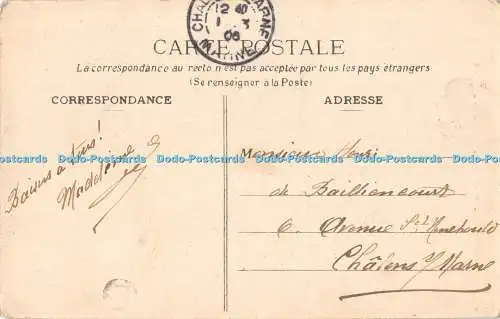 CHAL ARNE
12 40
1 3
06
MARNE
CARTE POSTALE
La correspondance au recto n'est pas acceptée par tous les pays étrangers
(Se renseigner à la Poste)
CORRESPONDANCE
ADRESSE
Baisers à tous!
Madeleine
Monsieur Henri
de Bailliencourt
6, Avenue Ste Menehould
Châlons s/ Marne
Dodo-Postcards Dodo-Postcards Dodo-Postcards Dodo-Postcards Dodo-Postcards